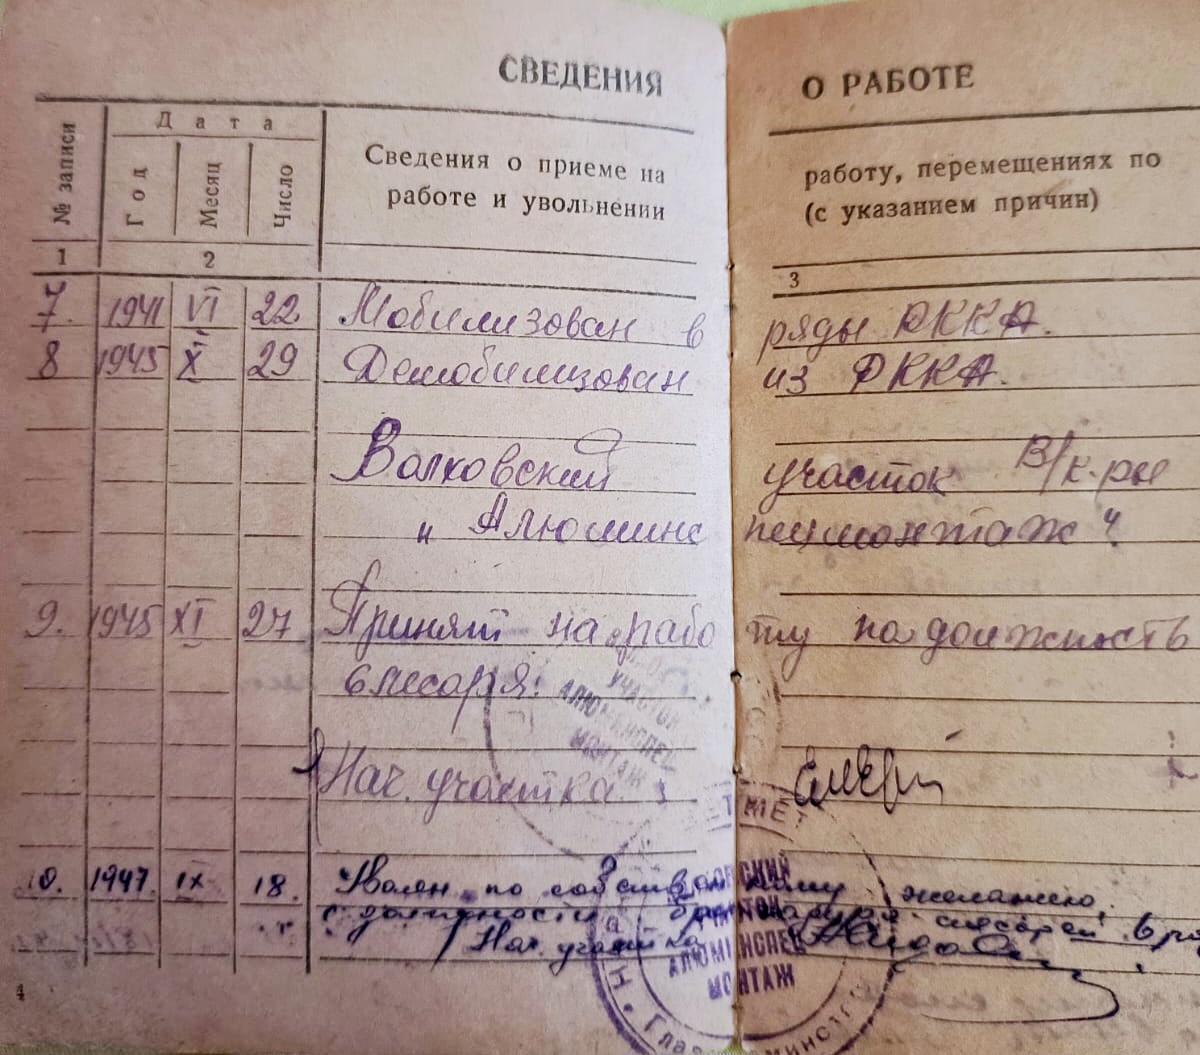 СВЕДЕНИЯ О РАБОТЕ
№ записи
Дата
Год
Месяц
Число
Сведения о приеме на работу, перемещениях по
работе и увольнении (с указанием причин)
1 2 3
7. 1941 VI 22 Мобилизован в ряды РККА.
8 1945 X 29 Демобилизован из РККА.
Волховский участок В/к-ры
"Алюминспецмонтаж"
9. 1945 XI 27 Принят на работу на должность
слесаря.
УЧАСТОК
МОНТАЖ
Нач. участка
10. 1947. IX 18. Уволен по собственному желанию,
с должности бригадира слесарей 6 ра
Нач. участка
УЧАСТОК
АЛЮМИНСПЕЦ
МОНТАЖ
4